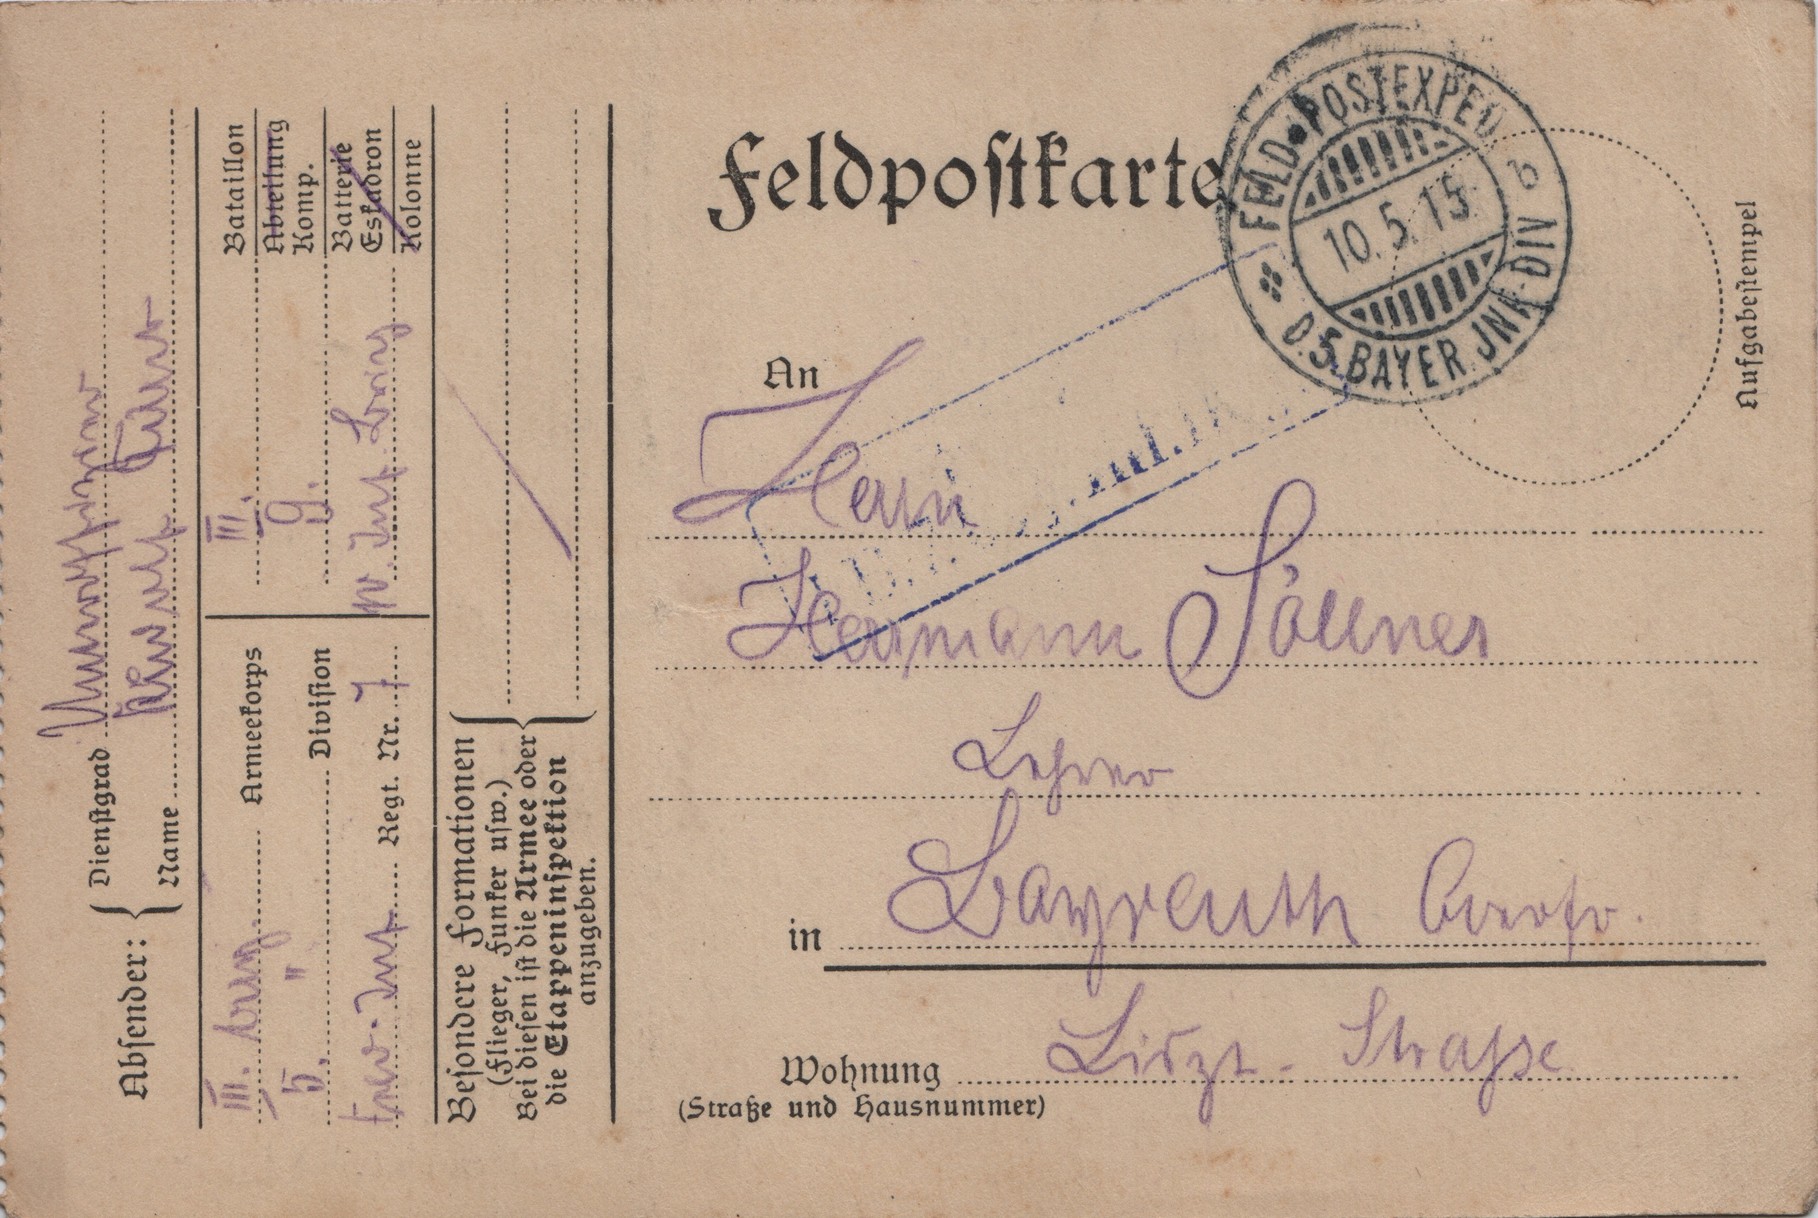 Feldpostkarte
FELD-POSTEXPED
10.5.15
b
D. 5. BAYER. JNF. DIV
Aufgabestempel
An
Herrn
Hermann Söllner
Lehrer
in Bayreuth Oberfr.
Wohnung Liszt-Strasse
(Straße und Hausnummer)
Absender:
Dienstgrad
Name
III. bay. Armeekorps
5. " Division
Inf. Regt. Nr. 7
III. Bataillon
Abteilung
9. Komp.
Batterie
Eskadron
Kolonne
Besondere Formationen
(Flieger, Funker usw.)
Bei diesen ist die Armee oder
die Etappeninspektion
anzugeben.